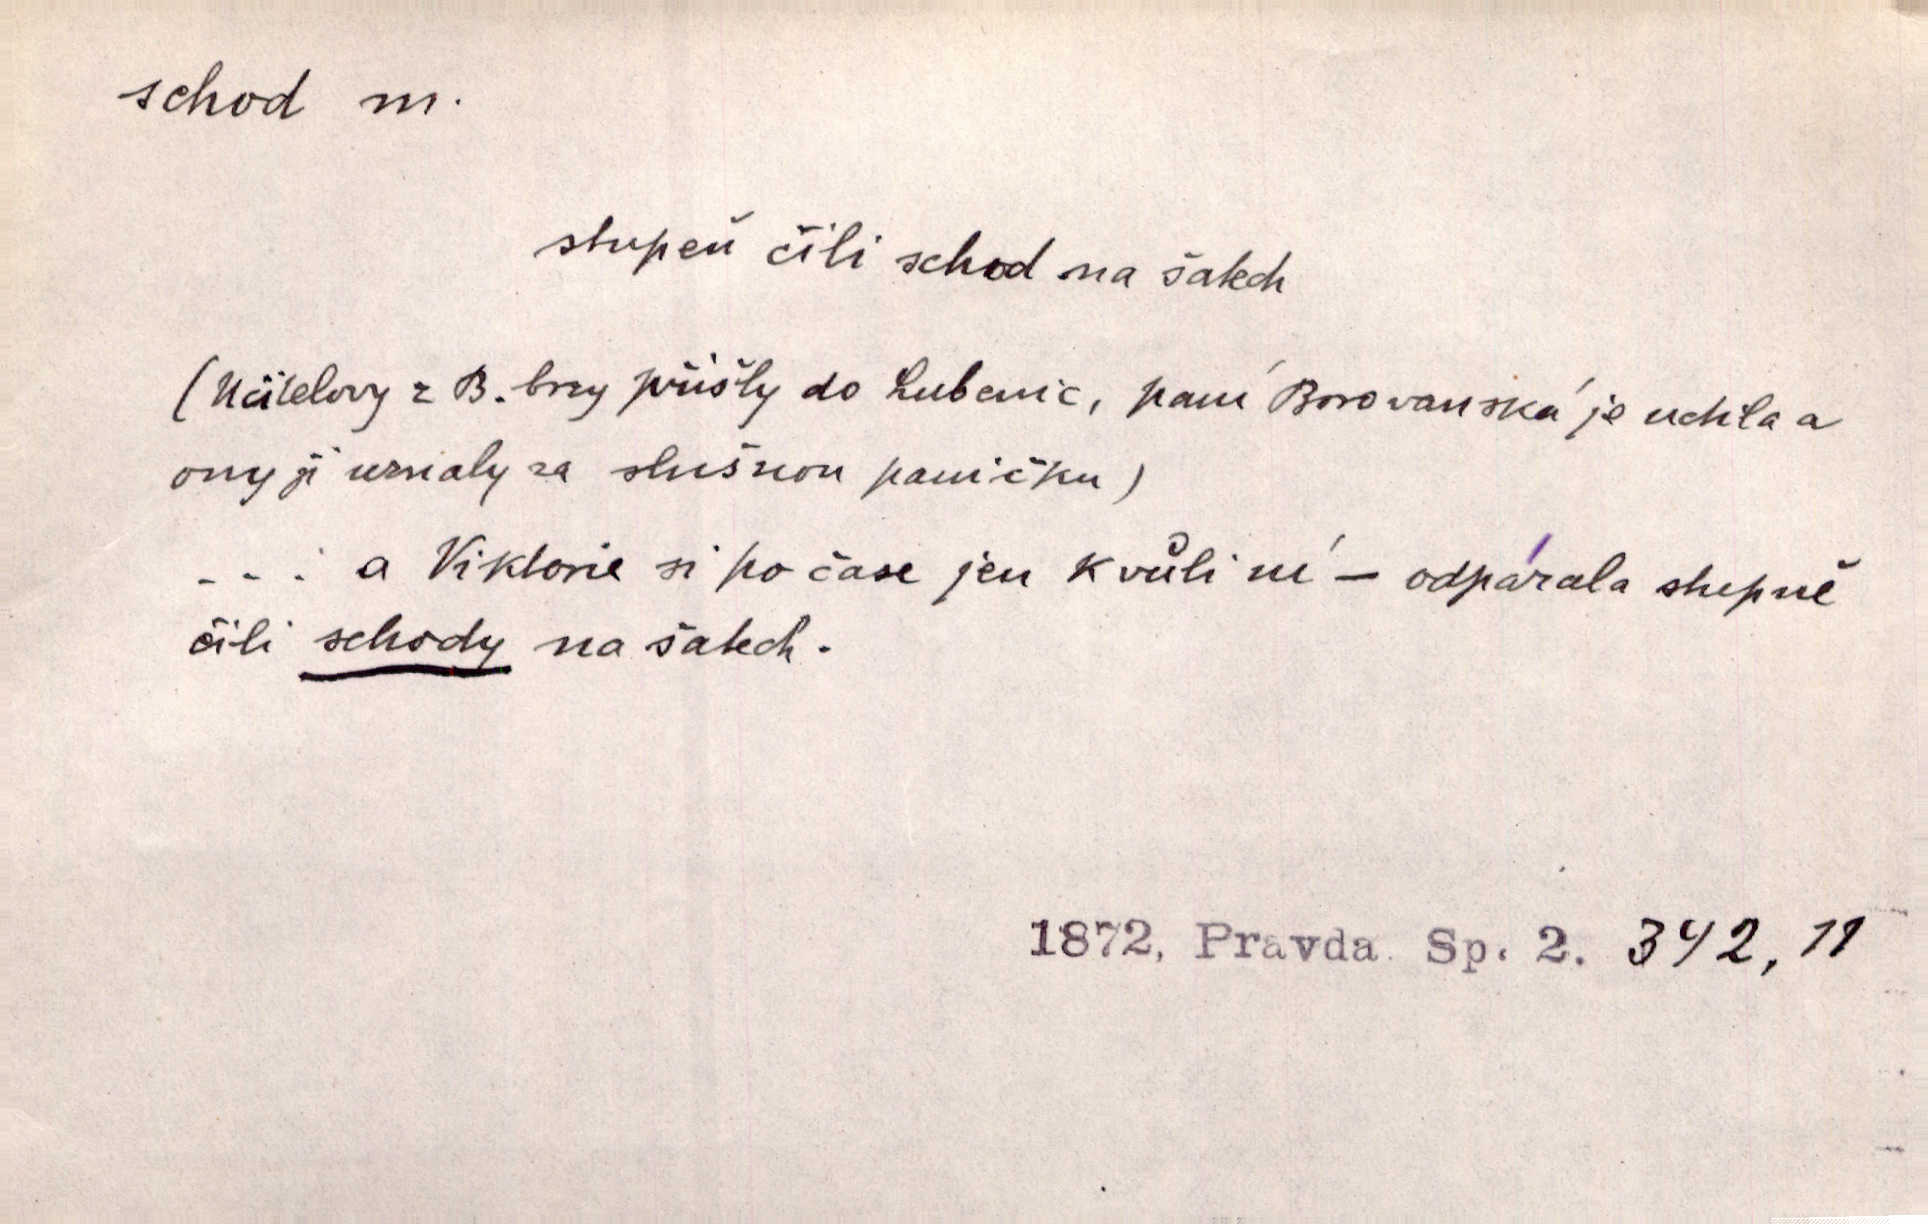 schod m.
stupeň čili schod na šatech
(Učitelovy z B. brzy přišly do Lubenic, paní Borovanská je uctila a
ony ji uznaly za slušnou paničku)
... a Viktorie si po čase jen kvůli ní — odpárala stupně
čili schody na šatech.
1872, Pravda Sp. 2. 342, 11